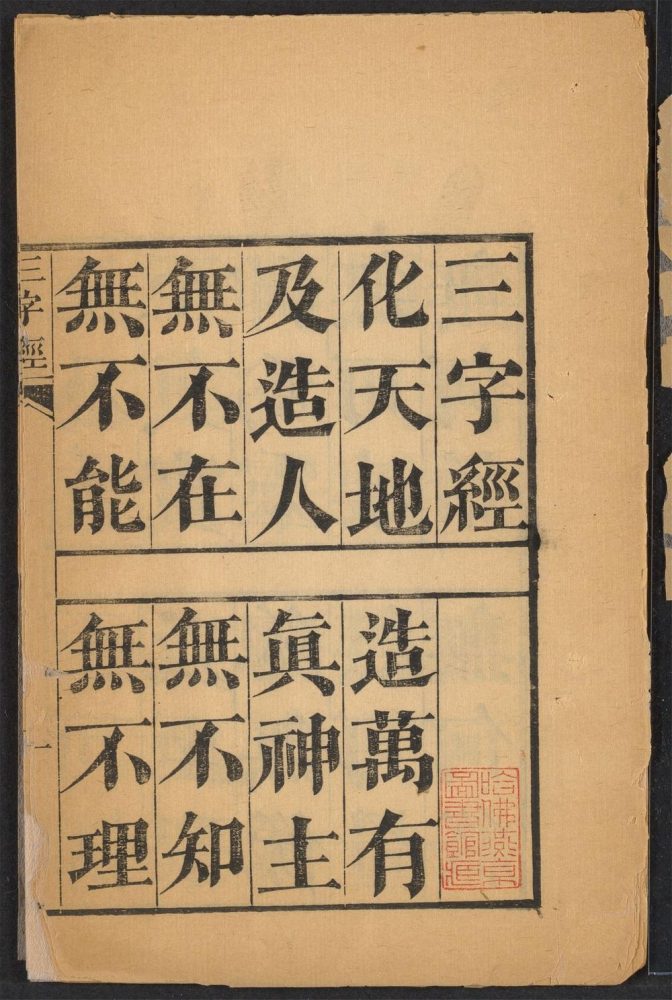 三字經
化天地
造萬有
及造人
眞神主
無不在
無不知
無不能
無不理
三字經
一
哈佛燕京
圖書館藏